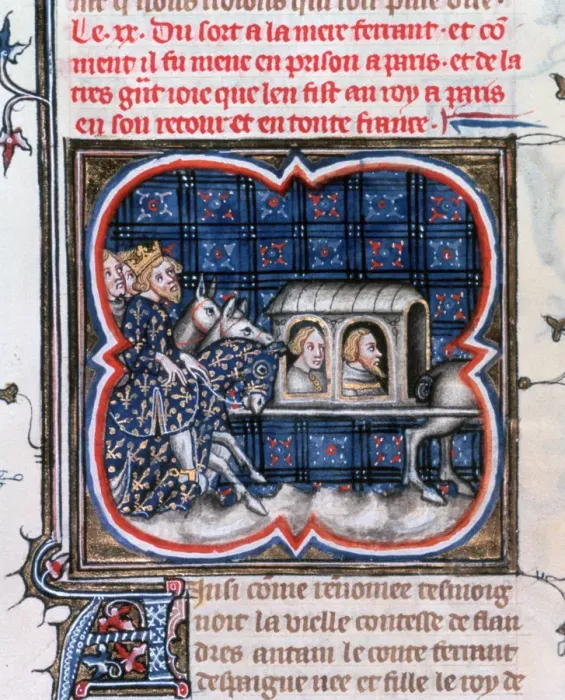 Le .xx. Du sort a la mere ferrant. et cō
ment il fu mene en prison a paris. et de la
tres gn̄t ioie que len fist au roy a paris
en son retour et en toute france.
Ainsi cōme renomee tesmoig
noit la vielle contesse de flan
dres antain le conte ferrant
despaigne nee et fille le roy de